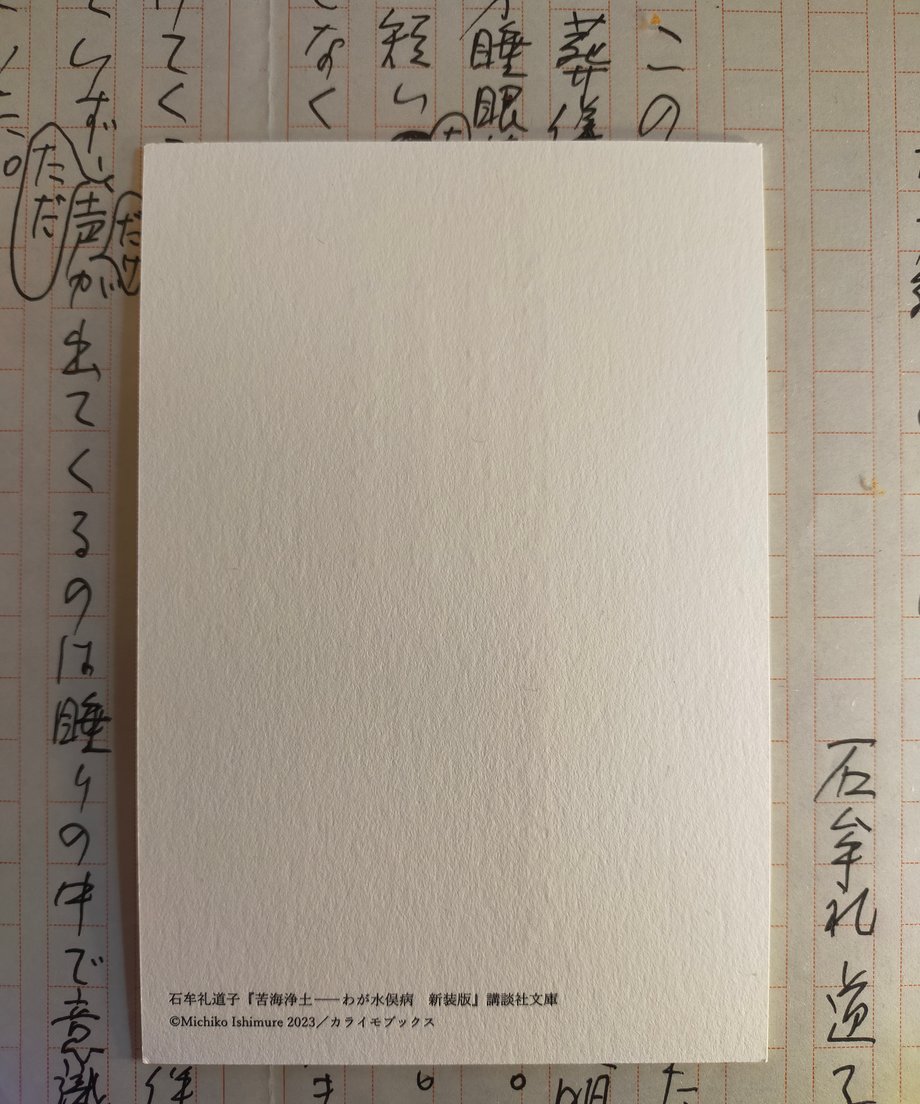 石牟礼道子
この
葬儀
睡眠
短い
なく
てく
だけ
いず
声が出てくるのは睡りの中で意識
ただ
石牟礼道子『苦海浄土——わが水俣病　新装版』講談社文庫
©Michiko Ishimure 2023／カライモブックス